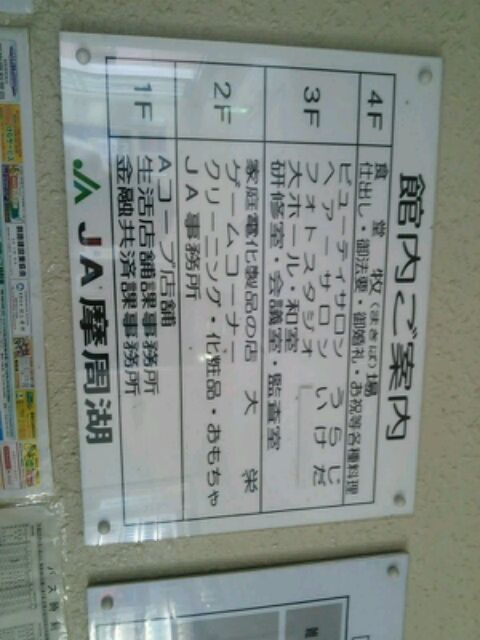 館内ご案内
4F 食堂 牧(まきば)場
仕出し・御法要・御婚礼・お祝等各種料理
3F ビューティサロン うらじ
ヘアーサロン いけだ
フォトスタジオ
大ホール・和室
研修室・会議室・監査室
2F 家庭電化製品の店 大栄
ゲームコーナー
クリーニング・化粧品・おもちゃ
JA事務所
1F Aコープ店舗
生活店舗課事務所
金融共済課事務所
JA摩周湖
バス時刻